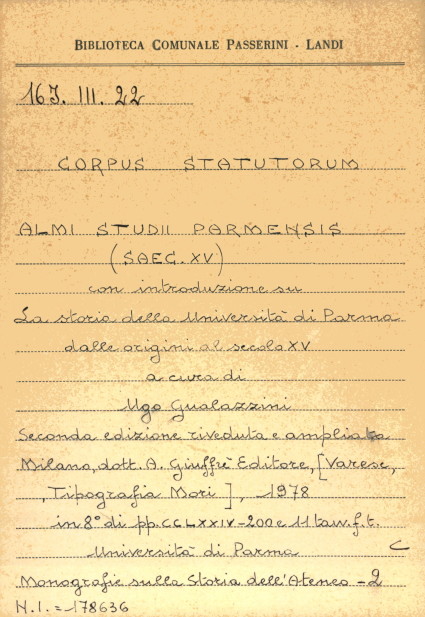 BIBLIOTECA COMUNALE PASSERINI - LANDI
16J. III. 22
CORPUS STATUTORUM
ALMI STUDII PARMENSIS
(SAEC. XV)
con introduzione su
La storia della Università di Parma
dalle origini al secolo XV
a cura di
Ugo Gualazzini
Seconda edizione riveduta e ampliata
Milano, dott. A. Giuffrè Editore, [Varese,
Tipografia Mori], 1978
in 8° di pp. CCLXXIV-200 e 11 tav. f.t.
Università di Parma C
Monografie sulla Storia dell'Ateneo - 2
N.I. = 178636